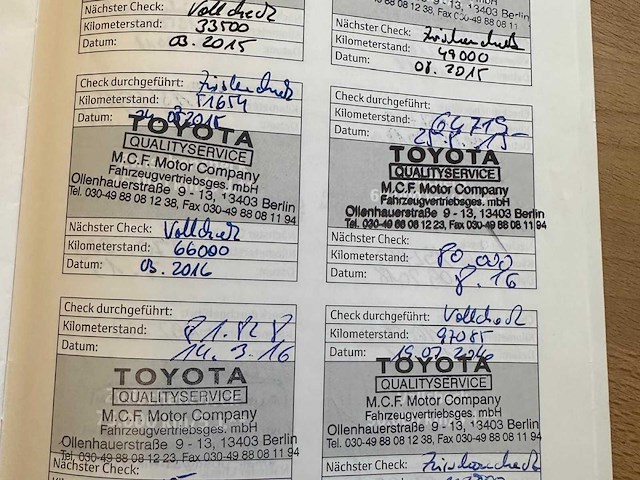 Nächster Check: Vollcheck
Kilometerstand: 33500
Datum: 03.2015
49 88 08 12 38, Fax 030-49 88 08 11
13403 Berlin
Nächster Check: Zwischencheck
Kilometerstand: 49000
Datum: 08.2015
Check durchgeführt: Zwischencheck
Kilometerstand: 51654
Datum: 2015
TOYOTA
QUALITYSERVICE
M.C.F. Motor Company
Fahrzeugvertriebsges. mbH
Ollenhauerstraße 9 - 13, 13403 Berlin
Tel. 030-49 88 08 12 38, Fax 030-49 88 08 11 94
Nächster Check: Vollcheck
Kilometerstand: 66000
Datum: 03.2016
Check durchgeführt:
Kilometerstand: 64719
Datum:
TOYOTA
QUALITYSERVICE
M.C.F. Motor Company
Fahrzeugvertriebsges. mbH
Ollenhauerstraße 9 - 13, 13403 Berlin
Tel. 030-49 88 08 12 23, Fax 030-49 88 08 11 94
Nächster Check:
Kilometerstand: 80.000
Datum: 8.16
Check durchgeführt:
Kilometerstand: 81.828
Datum: 14.3.16
TOYOTA
QUALITYSERVICE
M.C.F. Motor Company
Fahrzeugvertriebsges. mbH
Ollenhauerstraße 9 - 13, 13403 Berlin
Tel. 030-49 88 08 12 38, Fax 030-49 88 08 11 94
Nächster Check:
Check durchgeführt: Vollcheck
Kilometerstand: 97085
Datum: 19.07.2016
TOYOTA
QUALITYSERVICE
M.C.F. Motor Company
Fahrzeugvertriebsges. mbH
Ollenhauerstraße 9 - 13, 13403 Berlin
Tel. 030-49 88 08 12 38, Fax 030-49 88 08 11 94
Nächster Check: Zwischencheck